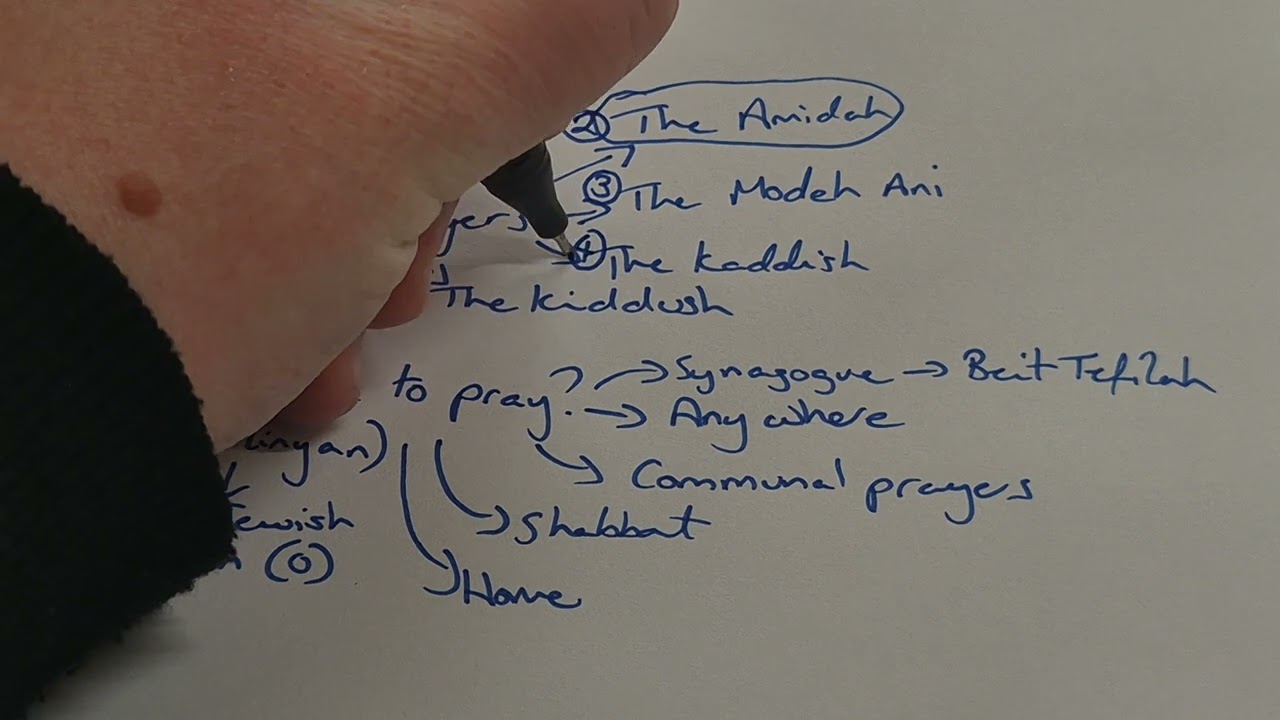 ② The Amidah
③ The Modeh Ani
④ The Kaddish
The Kiddush
to pray? → Synagogue → Beit Tefilah
→ Anywhere
→ Communal prayers
→ Shabbat
→ Home
(O)